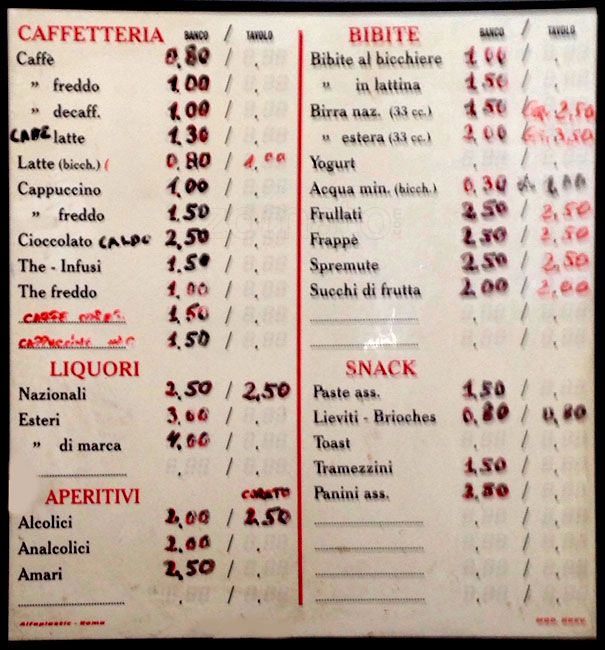 CAFFETTERIA BANCO / TAVOLO
Caffè 0,80 /
" freddo 1,00 /
" decaff. 1,00 /
CAFE latte 1,30 /
Latte (bicch.) ( 0,80 / 1,00
Cappuccino 1,00 /
" freddo 1,50 /
Cioccolato CALDO 2,50 /
The - Infusi 1,50 /
The freddo 1,00 /
CAFFE 1,50 /
CAPPUCCINO 1,50 /
LIQUORI
Nazionali 2,50 / 2,50
Esteri 3,00 /
" di marca 4,00 /
APERITIVI
Alcolici 2,00 / 2,50
Analcolici 2,00 /
Amari 2,50 /
Alfaplastic - Roma
BIBITE BANCO / TAVOLO
Bibite al bicchiere 1,00 /
" in lattina 1,50 /
Birra naz. (33 cc.) 1,50 / 2,50
" estera (33 cc.) 2,00 / 3,50
Yogurt /
Acqua min. (bicch.) 0,30 / 1,00
Frullati 2,50 / 2,50
Frappè 2,50 / 2,50
Spremute 2,50 / 2,50
Succhi di frutta 2,00 / 2,00
SNACK
Paste ass. 1,50 /
Lieviti - Brioches 0,80 / 0,80
Toast /
Tramezzini 1,50 /
Panini ass. 2,50 /